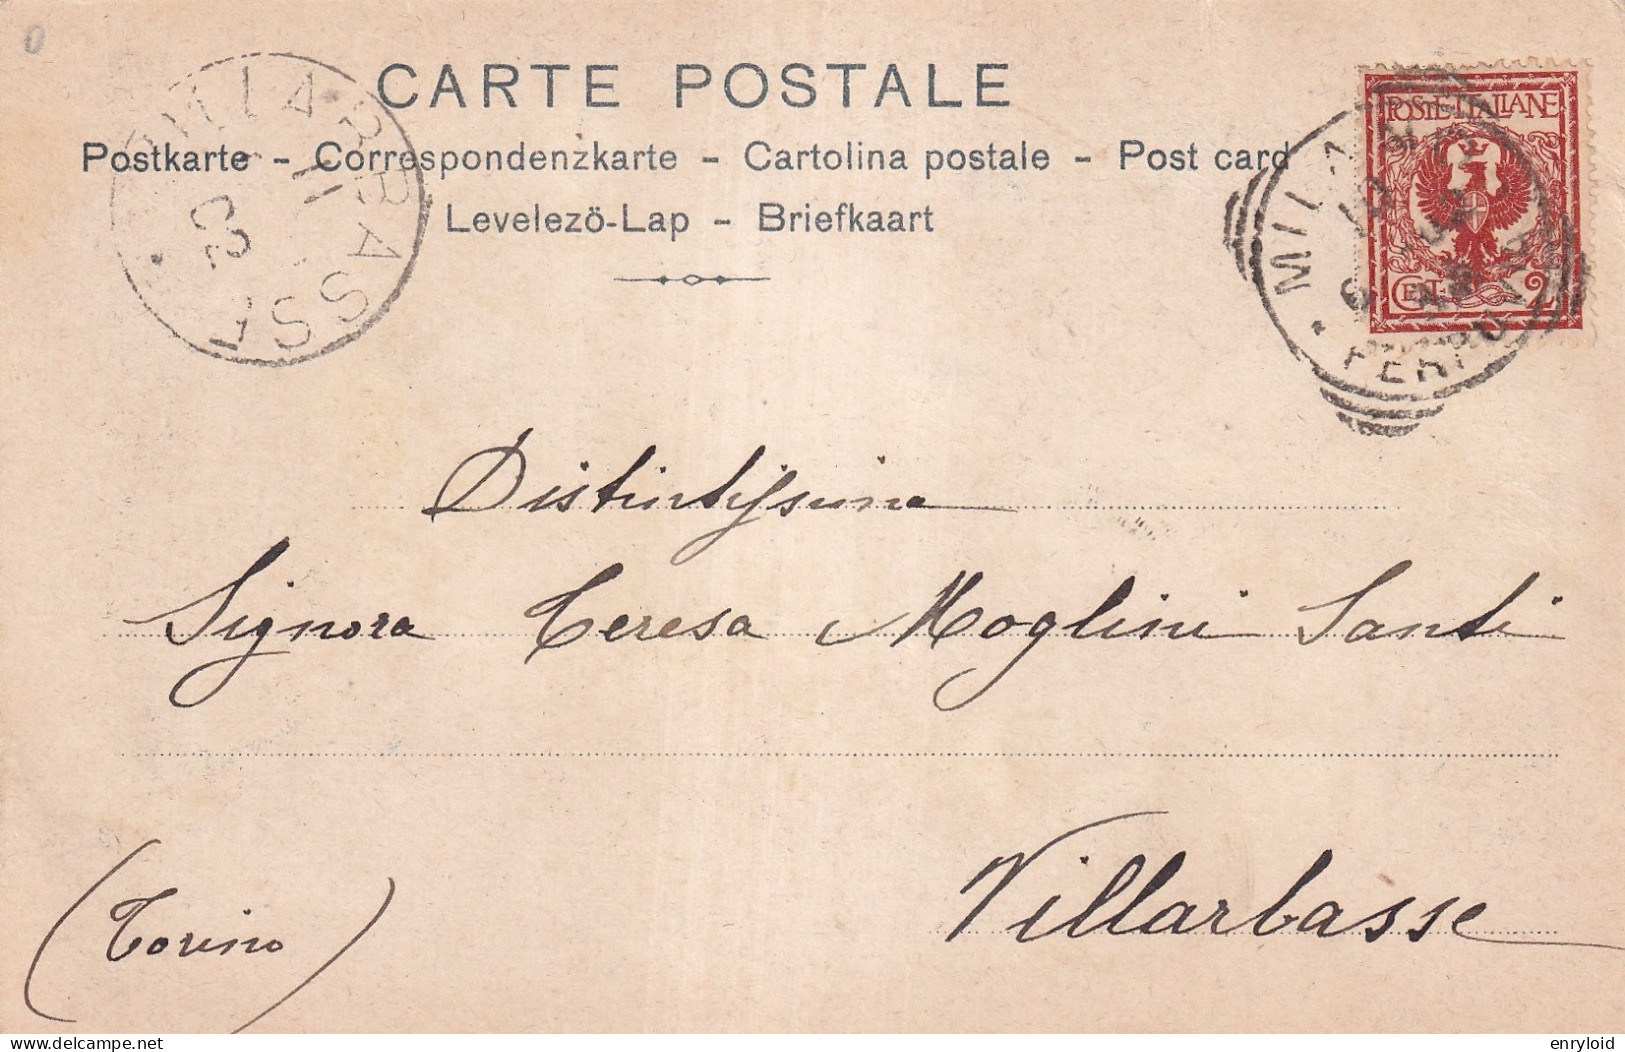 CARTE POSTALE
Postkarte - Correspondenzkarte - Cartolina postale - Post card
Levelezö-Lap - Briefkaart
POSTE ITALIANE
CENT. 2
VILLARBASSE
02
MILANO
FERROVIA
Distintissima
Signora Teresa Moglini Santi
Villarbasse
(Torino)
enryloid